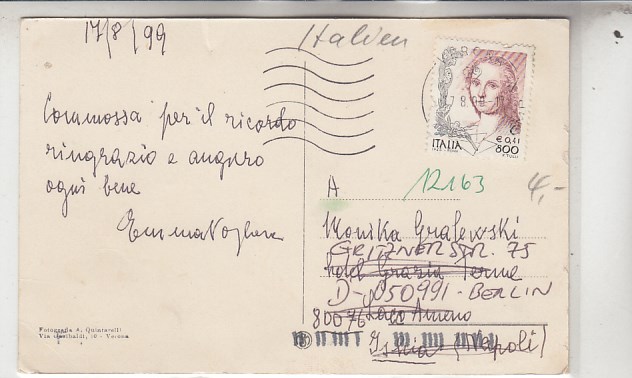 17/8/99
Italien
Commossa per il ricordo
ringrazio e auguro
ogni bene
ITALIA
€ 0,41
800
A
12163
4,-
Monika Gralewski
GRITZNERSTR. 75
Hotel Grazia Terme
D-050991-BERLIN
80076 Lacco Ameno
Ischia (Napoli)
Fotografia A. Quintarelli
Via Garibaldi, 10 - Verona